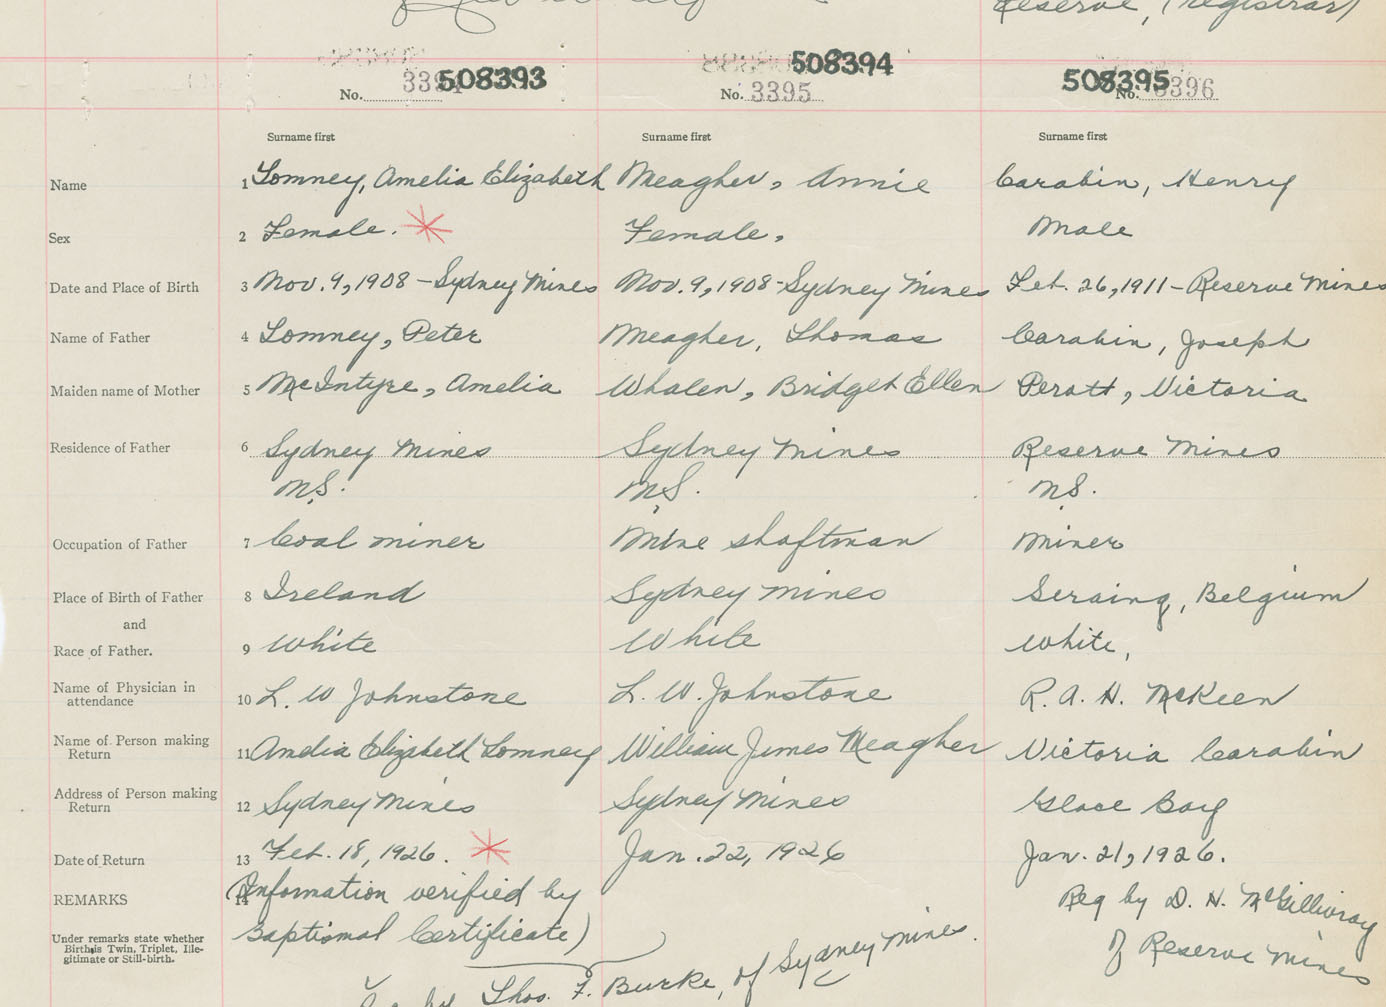 Reserve, (registrar)
508393 508394 508395
No. 3394 No. 3395 No. 3396
Surname first Surname first Surname first
Name 1 Lomney, Amelia Elizabeth Meagher, Annie Carabin, Henry
Sex 2 Female. Female, Male
Date and Place of Birth 3 Nov. 9, 1908 - Sydney Mines Nov. 9, 1908 - Sydney Mines Feb. 26, 1911 - Reserve Mines
Name of Father 4 Lomney, Peter Meagher, Thomas Carabin, Joseph
Maiden name of Mother 5 McIntyre, Amelia Whalen, Bridget Ellen Perott, Victoria
Residence of Father 6 Sydney Mines Sydney Mines Reserve Mines
N.S. N.S. N.S.
Occupation of Father 7 Coal miner Mine shaftman Miner
Place of Birth of Father 8 Ireland Sydney Mines Seraing, Belgium
and
Race of Father. 9 White White White,
Name of Physician in attendance 10 L. W Johnstone L. W. Johnstone R. A. H. McKeen
Name of Person making Return 11 Amelia Elizabeth Lomney William James Meagher Victoria Carabin
Address of Person making Return 12 Sydney Mines Sydney Mines Glace Bay
Date of Return 13 Feb. 18, 1926. Jan. 22, 1926 Jan. 21, 1926.
REMARKS 14 (Information verified by Reg by D. H. McGillivray
Under remarks state whether Birth is Twin, Triplet, Ille-
gitimate or Still-birth.
Baptismal Certificate) of Reserve Mines
by Thos. F. Burke, of Sydney Mines.